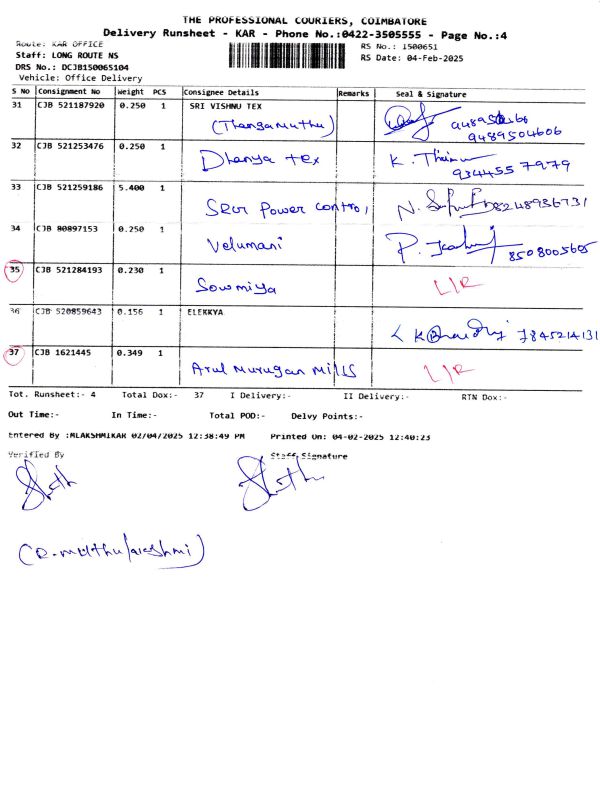 THE PROFESSIONAL COURIERS, COIMBATORE
Delivery Runsheet - KAR - Phone No.:0422-3505555 - Page No.:4
Route: KAR OFFICE RS No.: 1500651
Staff: LONG ROUTE NS RS Date: 04-Feb-2025
DRS No.: DCJB150065104
Vehicle: Office Delivery
S No Consignment No Weight PCS Consignee Details Remarks Seal & Signature
31 CJB 521187920 0.250 1 SRI VISHNU TEX
(Thangamuthu) 9489504606
32 CJB 521253476 0.250 1
Dhanya tex K. 9344557979
33 CJB 521259186 5.400 1
Power control N. 8248936731
34 CJB 80897153 0.250 1
Velumani P. 8508005605
35 CJB 521284193 0.230 1
Sowmiya L/R
36 CJB 520859643 0.156 1 ELEKKYA
7845214131
37 CJB 1621445 0.349 1
Arul Murugan Mills L/R
Tot. Runsheet:- 4 Total Dox:- 37 I Delivery:- II Delivery:- RTN Dox:-
Out Time:- In Time:- Total POD:- Delvy Points:-
Entered By :MLAKSHMIKAR 02/04/2025 12:38:49 PM Printed On: 04-02-2025 12:40:23
Verified By Staff Signature
(R. Muthulakshmi)